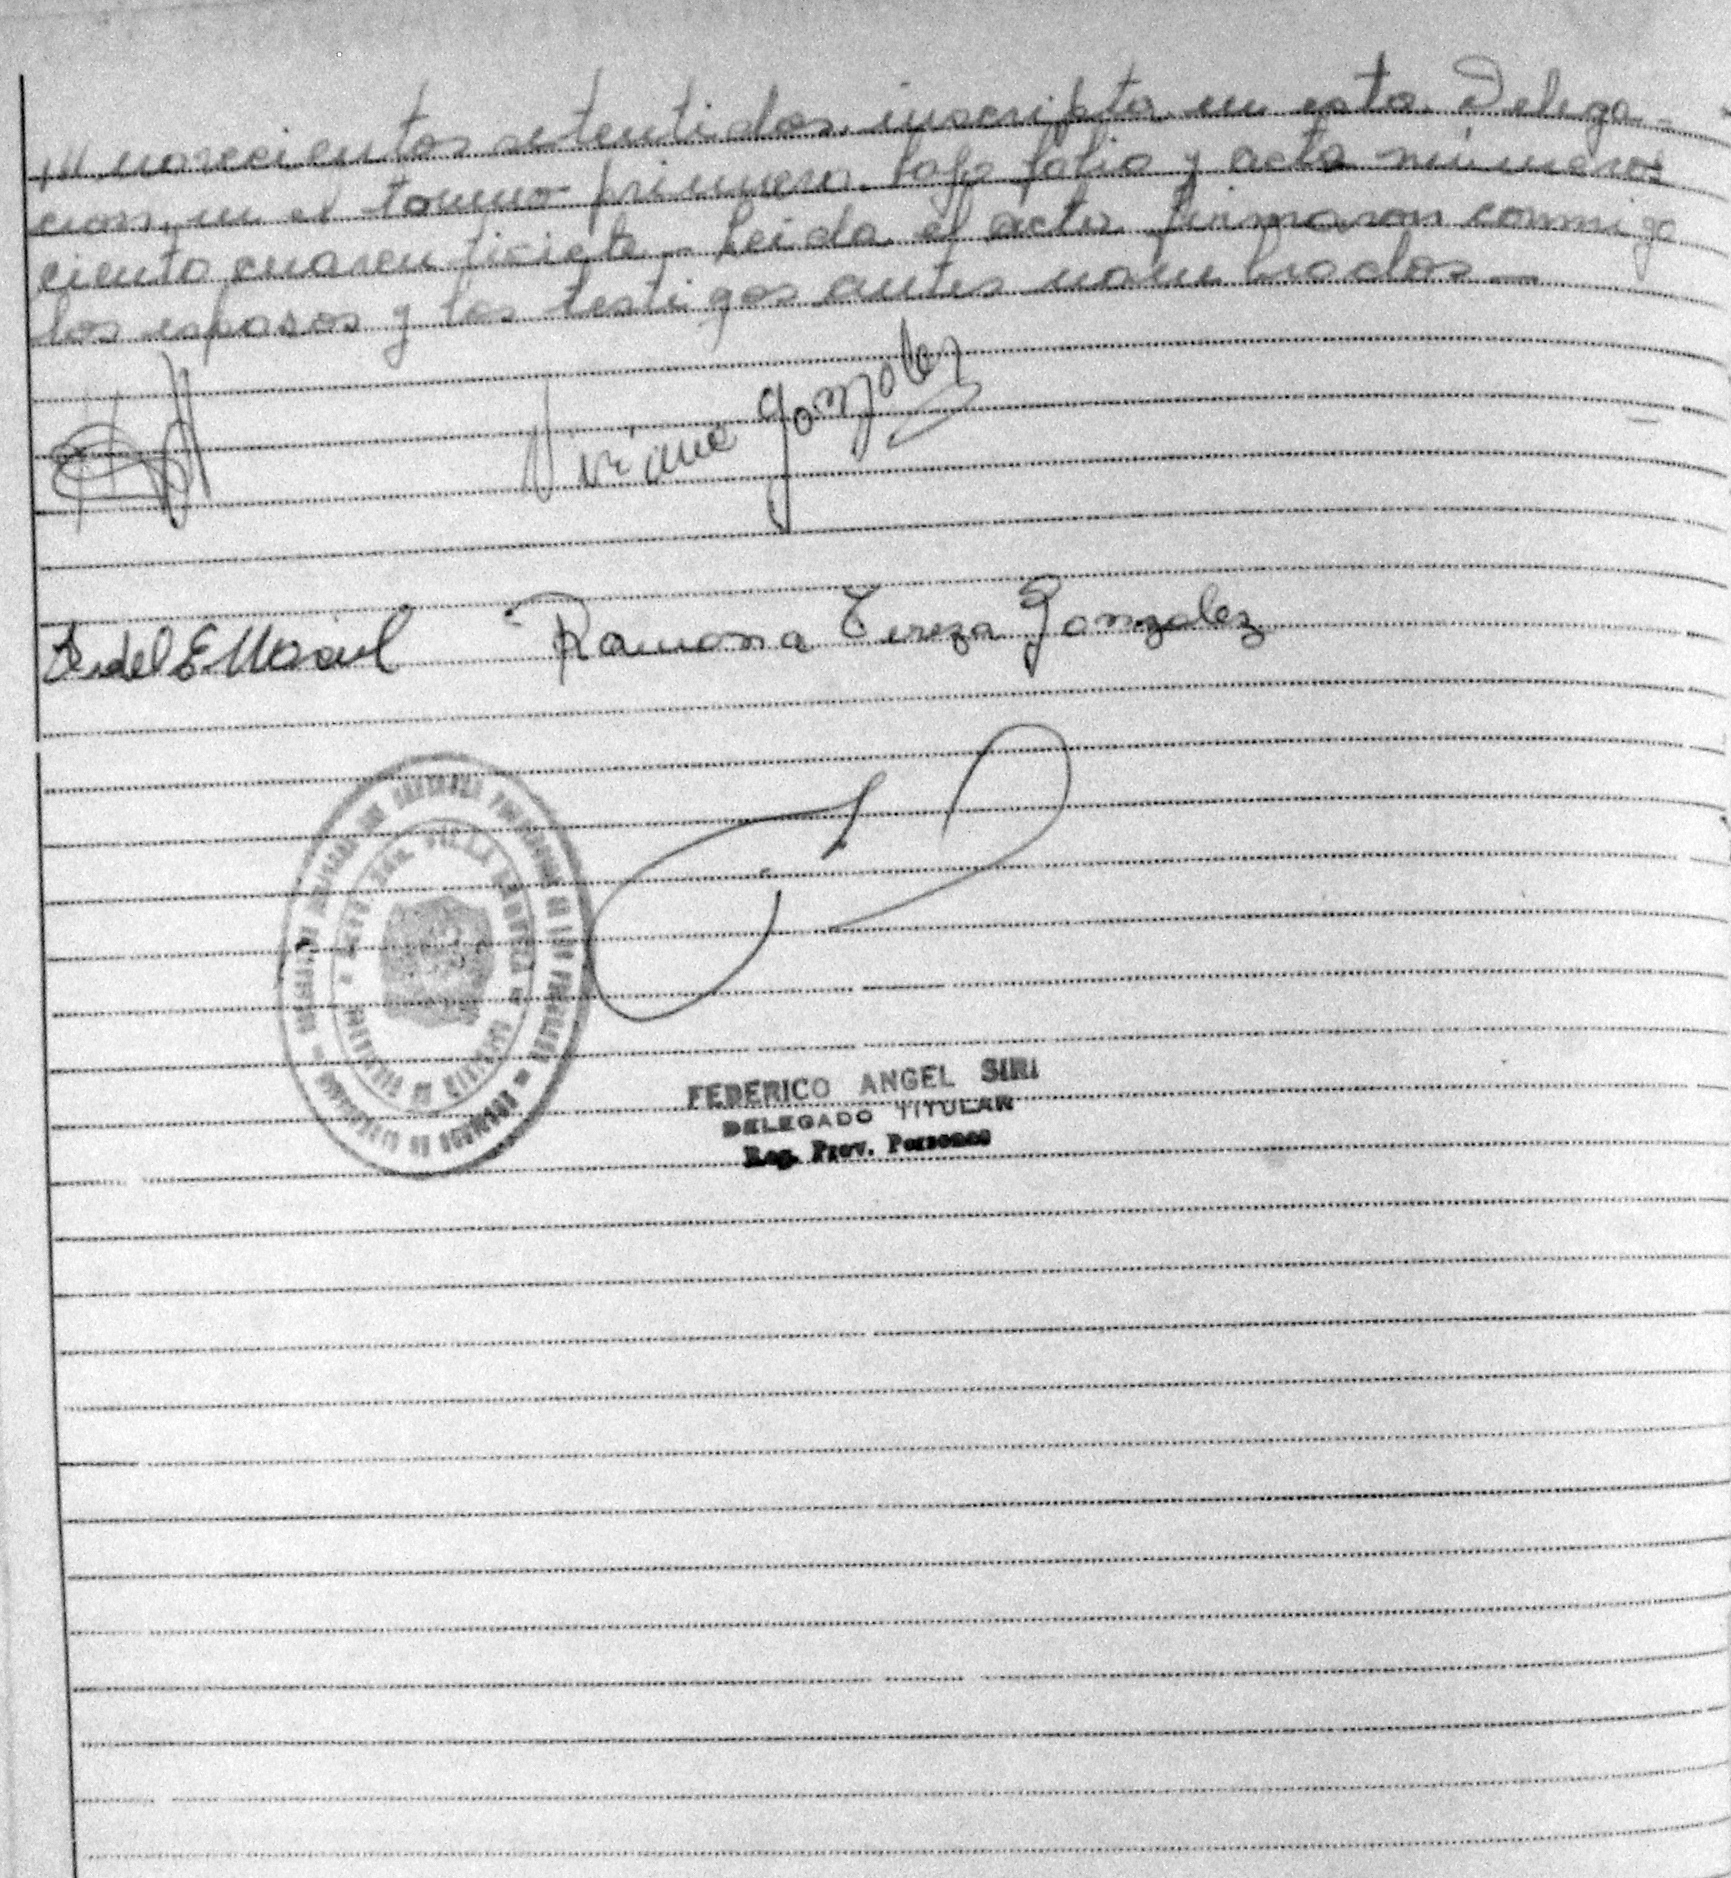 /// novecientos setentidos, inscripta en esta Delega-
cion, en el tommo primero, bajo folio y acta números
ciento cuarentisiete.- Leida el acta firmaron conmigo
los esposos y los testigos antes nombrados.-
Viviana Gonzalez
Fidel E.
Ramona Tereza Gonzalez
REGISTRO PROVINCIAL DE LAS PERSONAS
VILLA
FEDERICO ANGEL SIRI
DELEGADO TITULAR
Reg. Prov. Personas